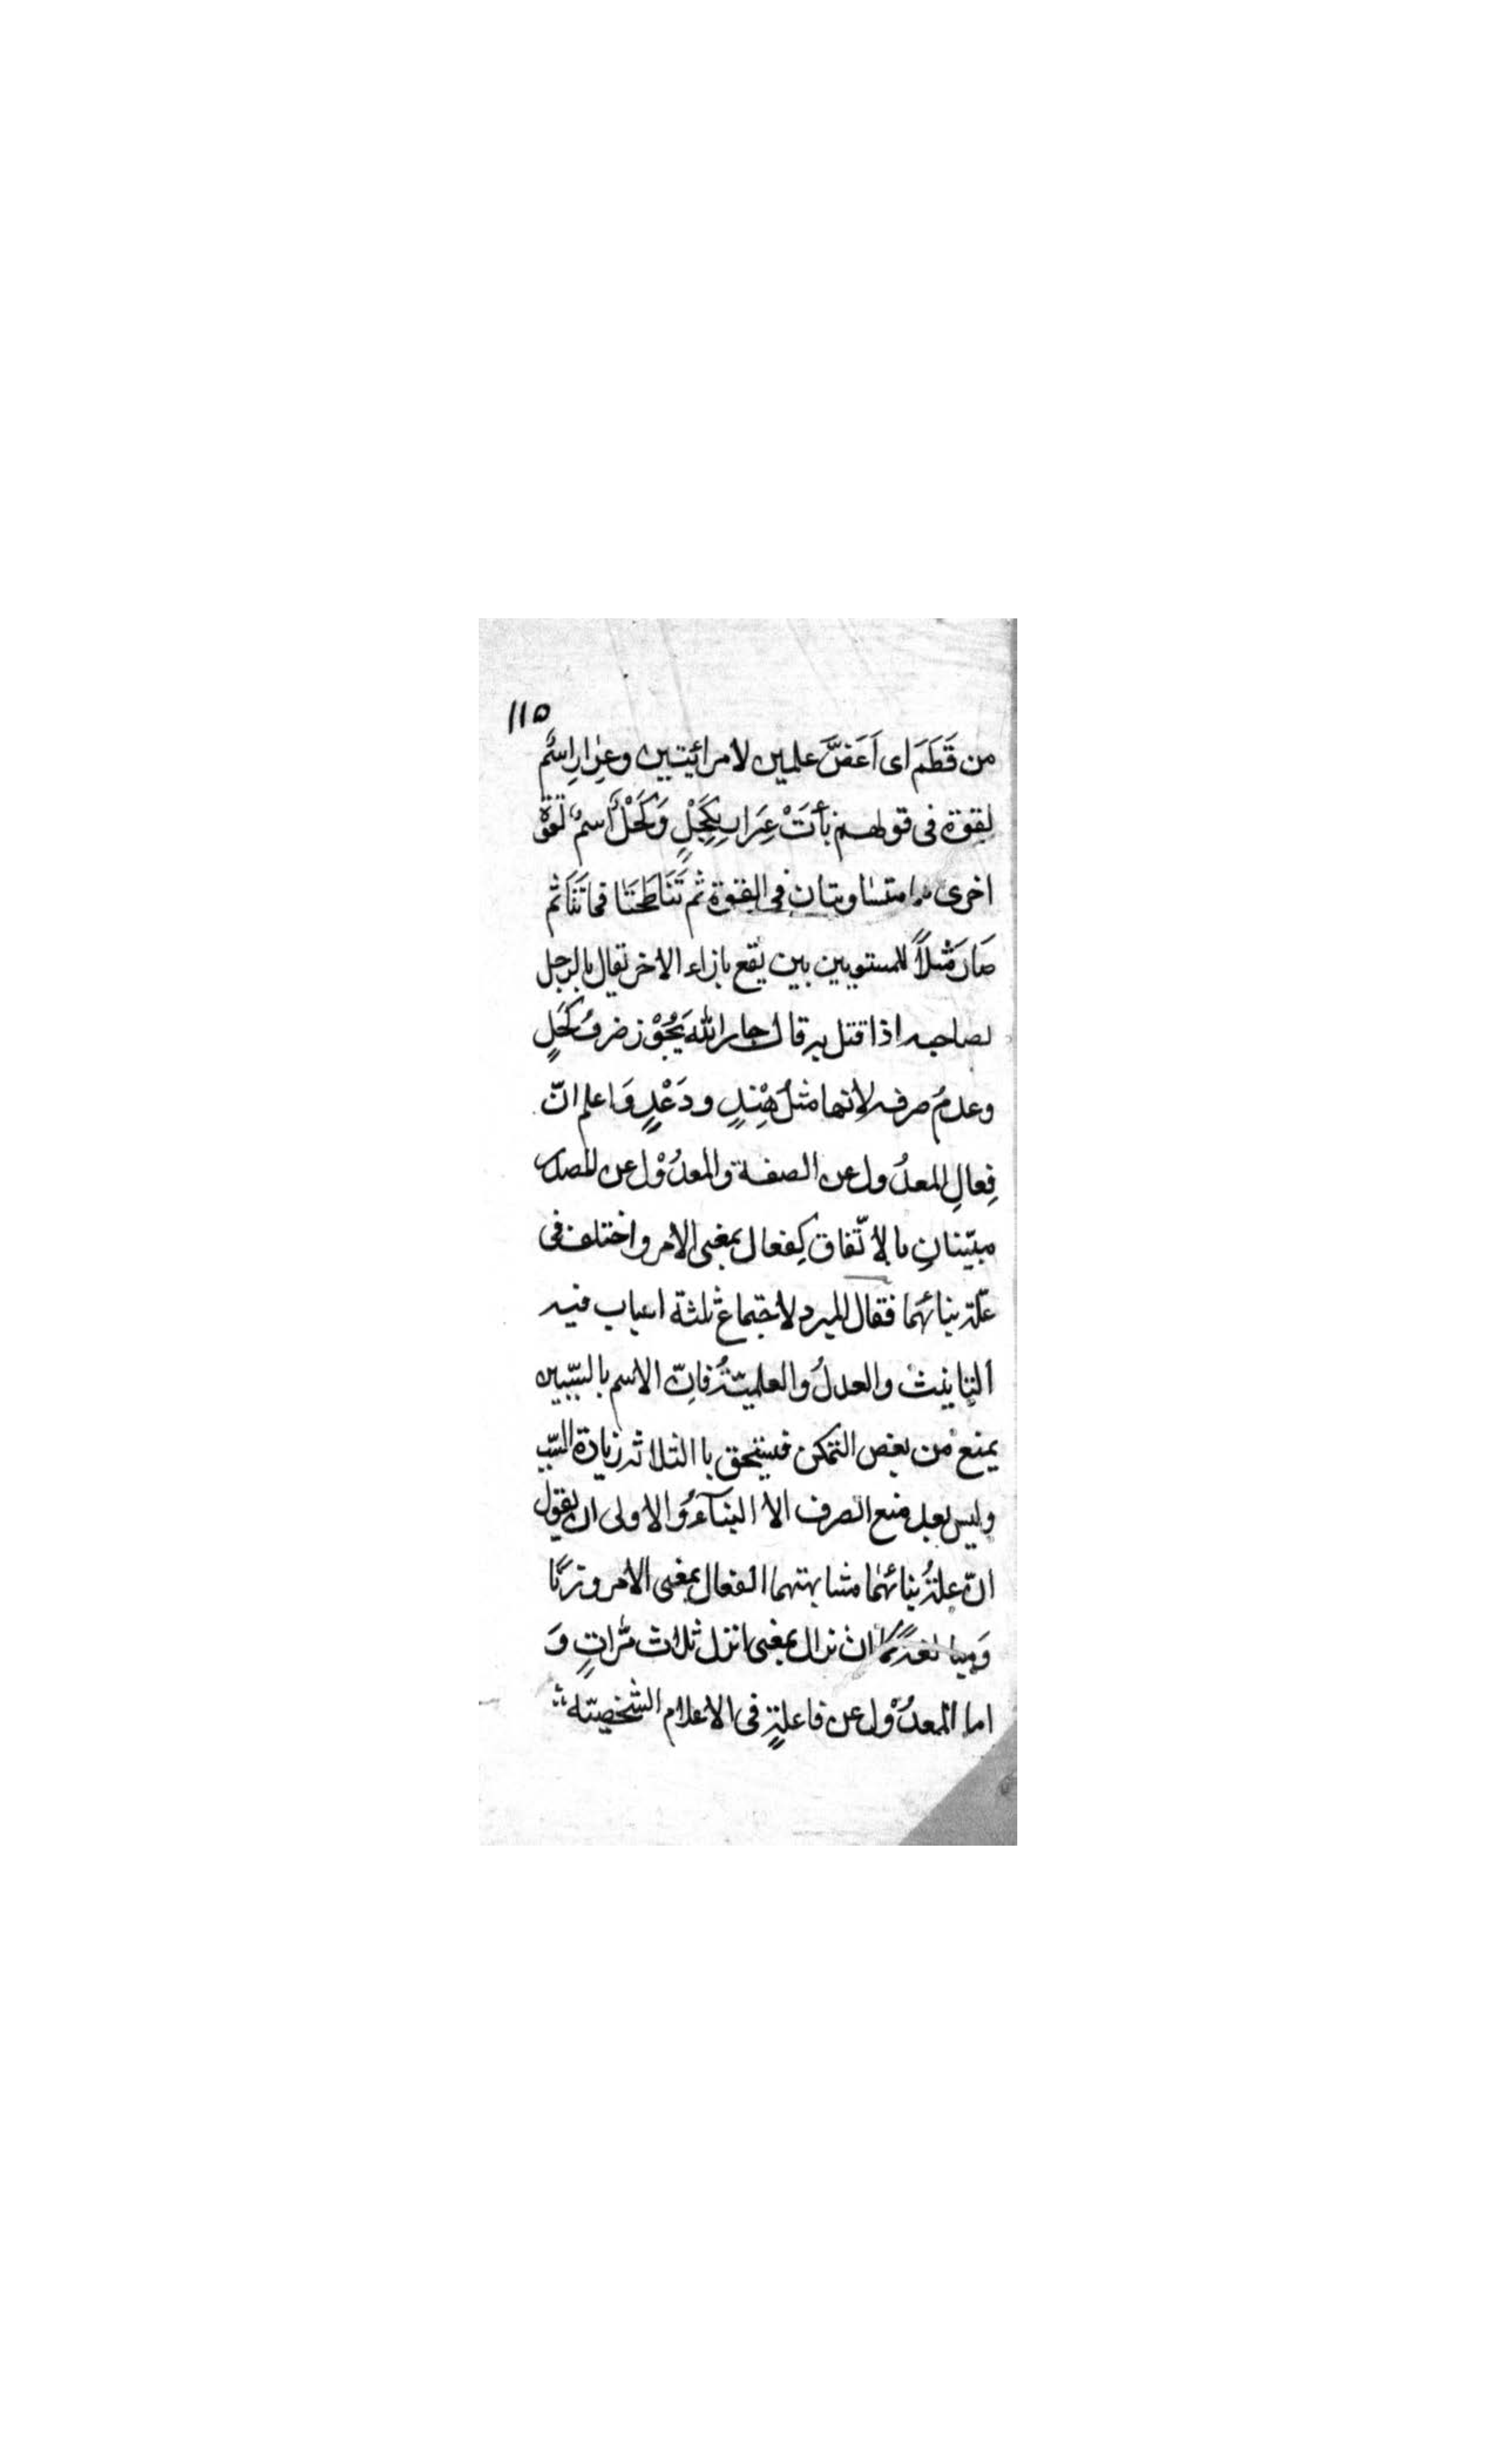 ١١٥
من قَطَمَ اى اَعَضَّ علمين لامرائيتين وعرارِ اسمٌ
لبقوة فى قولهم بأتَتْ عَرَارِ بِكَحْلٍ وَكَحْلُ اسمُ لبقوة
اخرى متساويتان فى البقوة ثم تَنَاطَحَتَا فماتَتَا ثم
صَارَ مَثَلاً للمستويين بين يقع بازاء الاخر تقال بالرجل
لصاحبه اذا قتل به قال جار الله يَجُوْز ضرفُ كَحَلٍ
وعدمُ صرفه لانها مثلُ هِنْدٍ ودَعْدٍ وَاعلم انّ
فِعالِ المعدُول عن الصفة والمعدُوْل عن المصدر
مبيّنانِ بالاِتّفاق كِفعال بمعنى الامر واختلف فى
علّة بنائهما فقال المبرد لاجتماع ثلثة اسباب فيه
التانيث والعدلُ والعلميّةُ فانّ الاسم بالسبّبين
يمنع من بعض التمكن فيستحق باالثلاثه زيادة السبّب
وليس بعد منع الصرف الا البنآءُ والاولى ان يقول
انّ علةُ بنائهما مشابهتهما الفعال بمعنى الامر وزنًا
وَ ان نزال بمعنى انزل ثلاث مرّاتٍ وَ
اما المعدُوْل عن فاعلةٍ فى الاعلام الشخصيّة